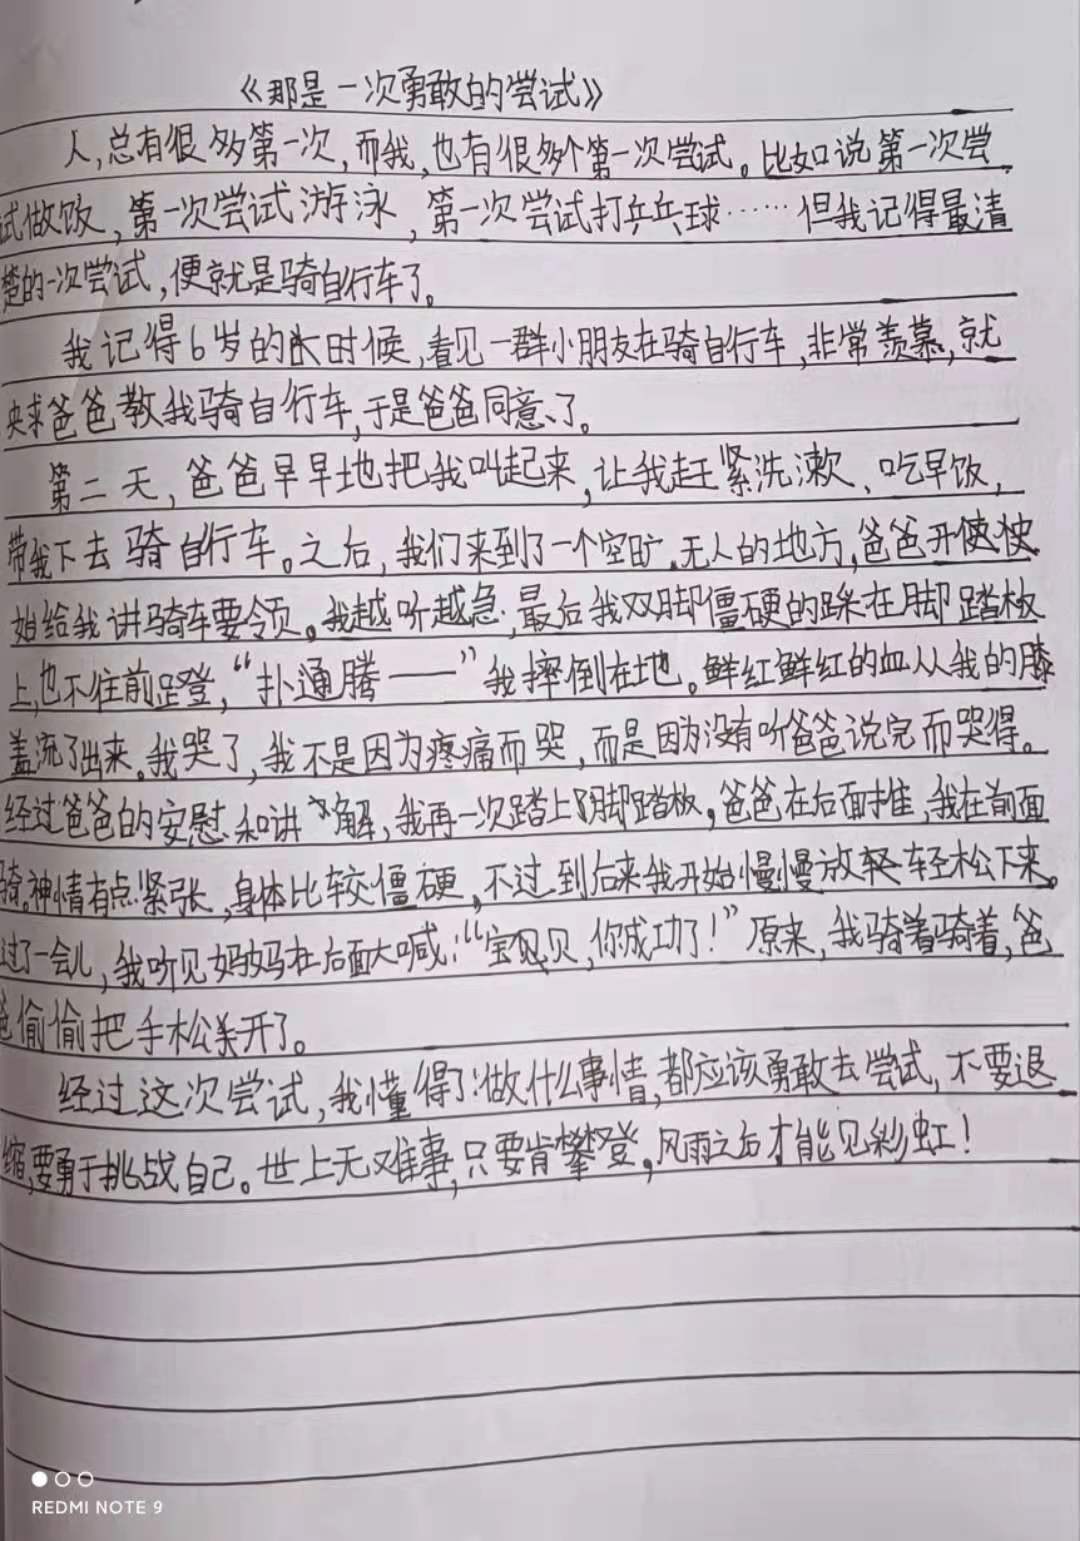 《那是一次勇敢的尝试》
人,总有很多第一次,而我,也有很多个第一次尝试。比如说第一次尝
试做饭,第一次尝试游泳,第一次尝试打乒乓球……但我记得最清
楚的一次尝试,便就是骑自行车了。
我记得6岁的时候,看见一群小朋友在骑自行车,非常羡慕,就
央求爸爸教我骑自行车,于是爸爸同意了。
第二天,爸爸早早地把我叫起来,让我赶紧洗漱、吃早饭,
带我下去骑自行车。之后,我们来到了一个空旷、无人的地方,爸爸开
始给我讲骑车要领。我越听越急,最后我双脚僵硬的踩在脚踏板
上,也不住前蹬,“扑通腾——”我摔倒在地。鲜红鲜红的血从我的膝
盖流了出来。我哭了,我不是因为疼痛而哭,而是因为没有听爸爸说完而哭得。
经过爸爸的安慰和讲解,我再一次踏上了脚踏板。爸爸在后面推,我在前面
骑。神情有点紧张,身体比较僵硬,不过到后来我开始慢慢放轻轻松下来。
过了一会儿,我听见妈妈在后面大喊:“宝贝贝,你成功了!”原来,我骑着骑着,爸
爸偷偷把手松开了。
经过这次尝试,我懂得了:做什么事情,都应该勇敢去尝试,不要退
缩,要勇于挑战自己。世上无难事,只要肯攀登。风雨之后才能见彩虹!
REDMI NOTE 9